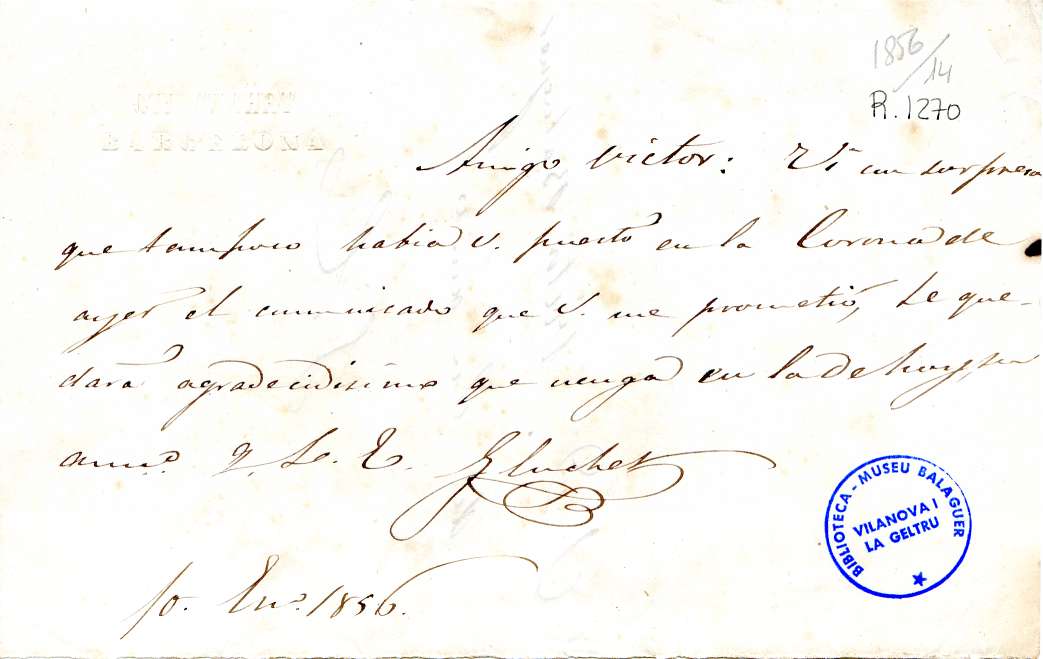 1856/14
R. 1270
BARCELONA
Amigo Victor: Vi con sorpresa
que tampoco habia V. puesto en la Corona de
ayer el comunicado que V. me prometió, le que-
dará agradecidisimo que venga en la de hoy, su
am.º y S. S.
10. En.º 1856.
BIBLIOTECA - MUSEU BALAGUER
VILANOVA I
LA GELTRU